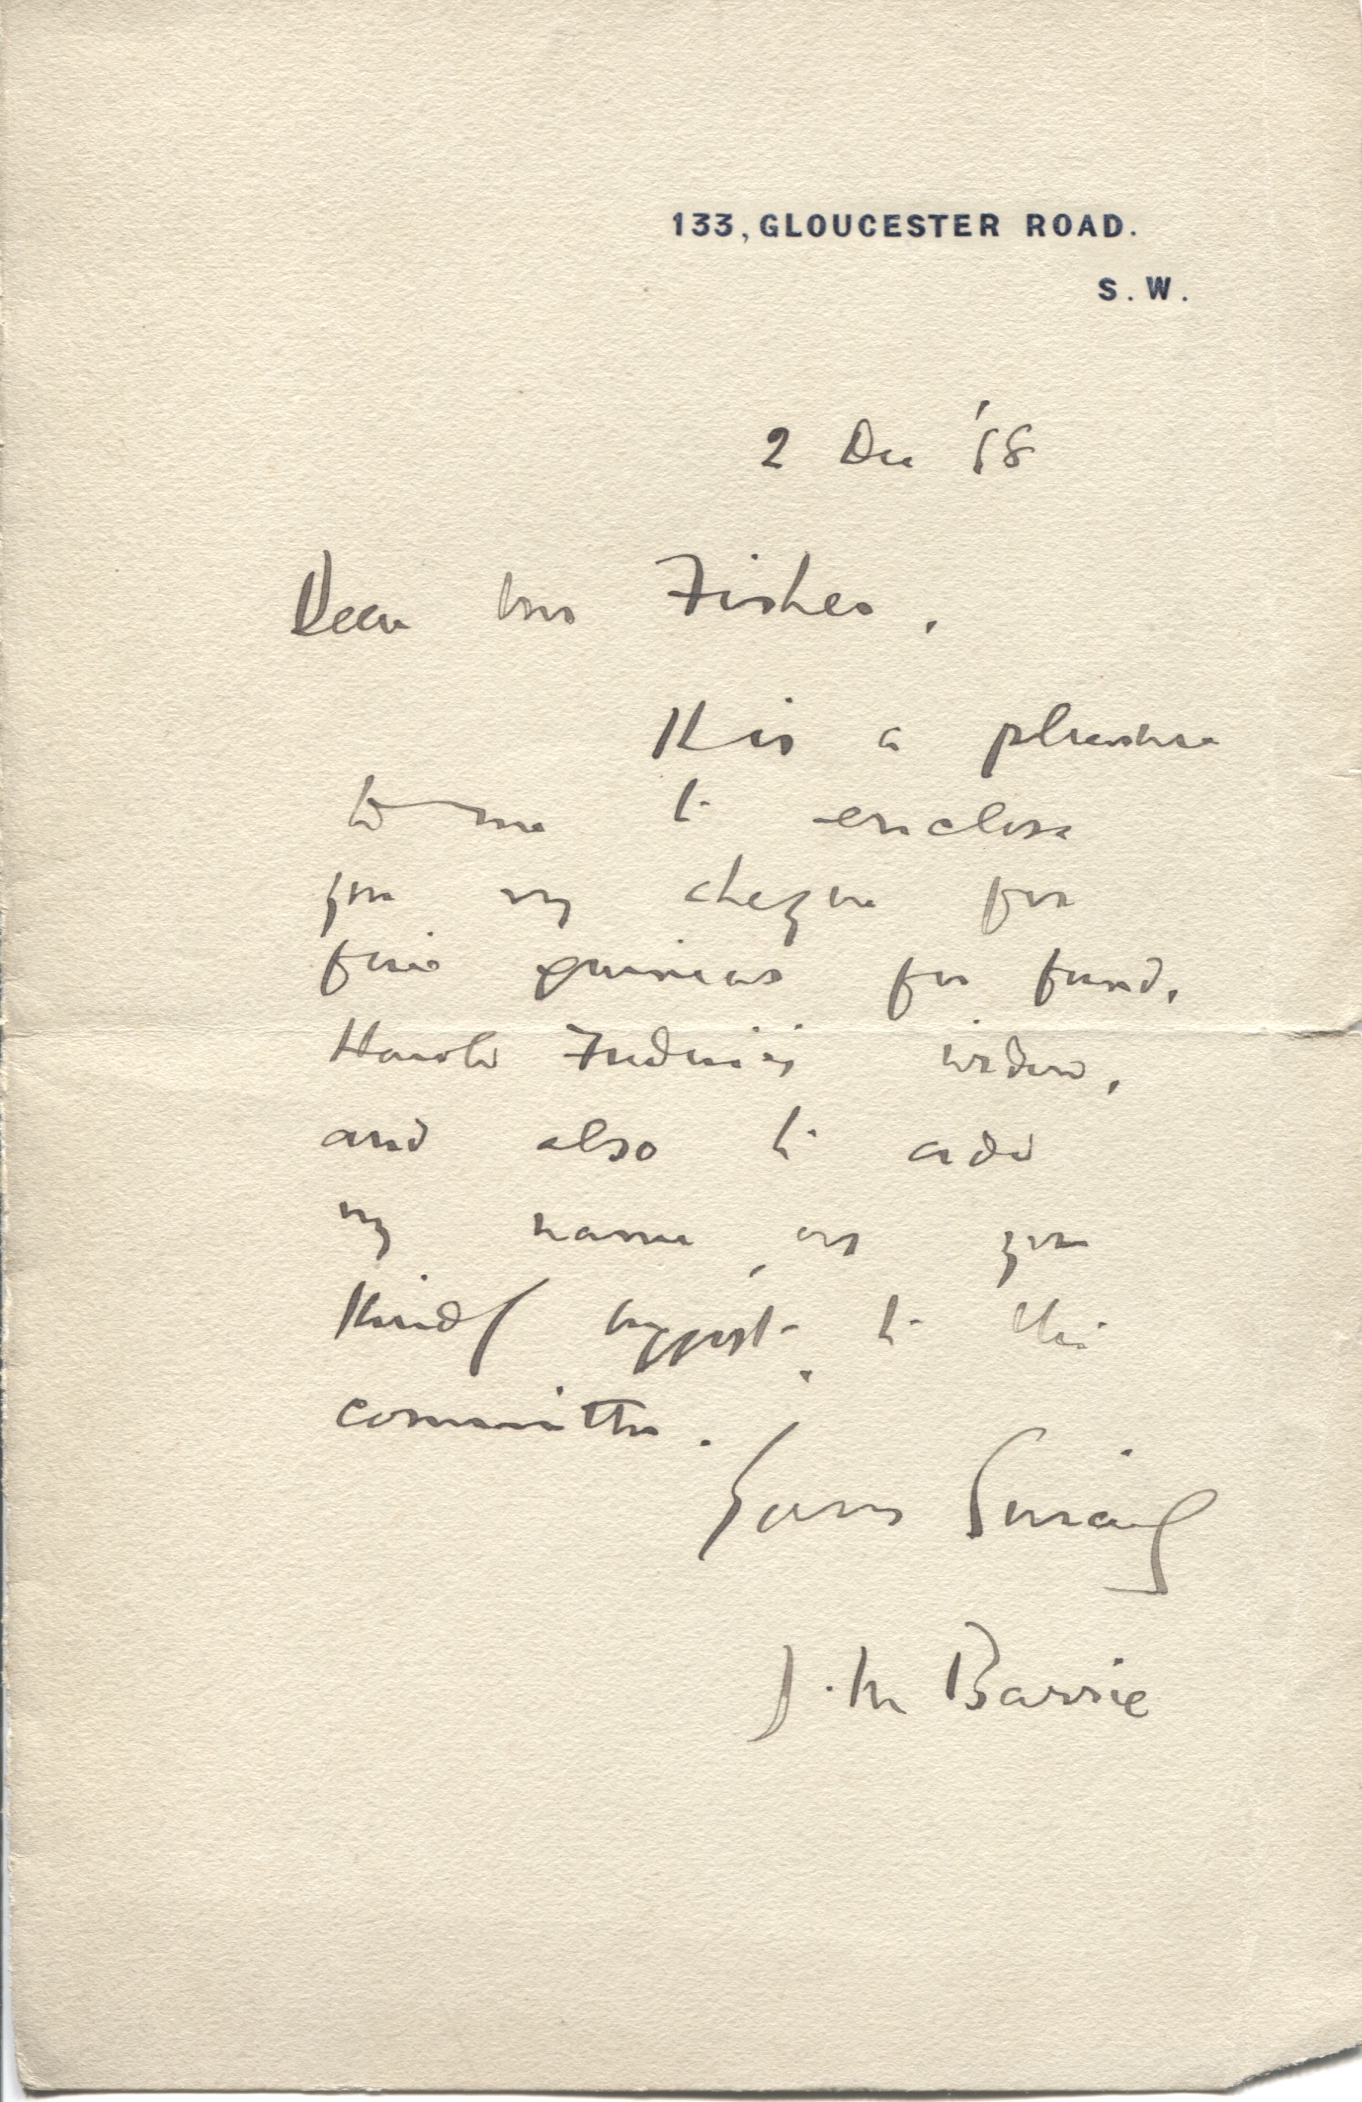 133, GLOUCESTER ROAD.
S. W.
2 Dec '98
Dear Mrs Fisher,
It is a pleasure
to me to enclose
you my cheque for
five guineas for fund,
Harold Frederic's widow,
and also to add
my name, as you
kindly suggest, to the
committee.
Yours Sincerely
J. M Barrie